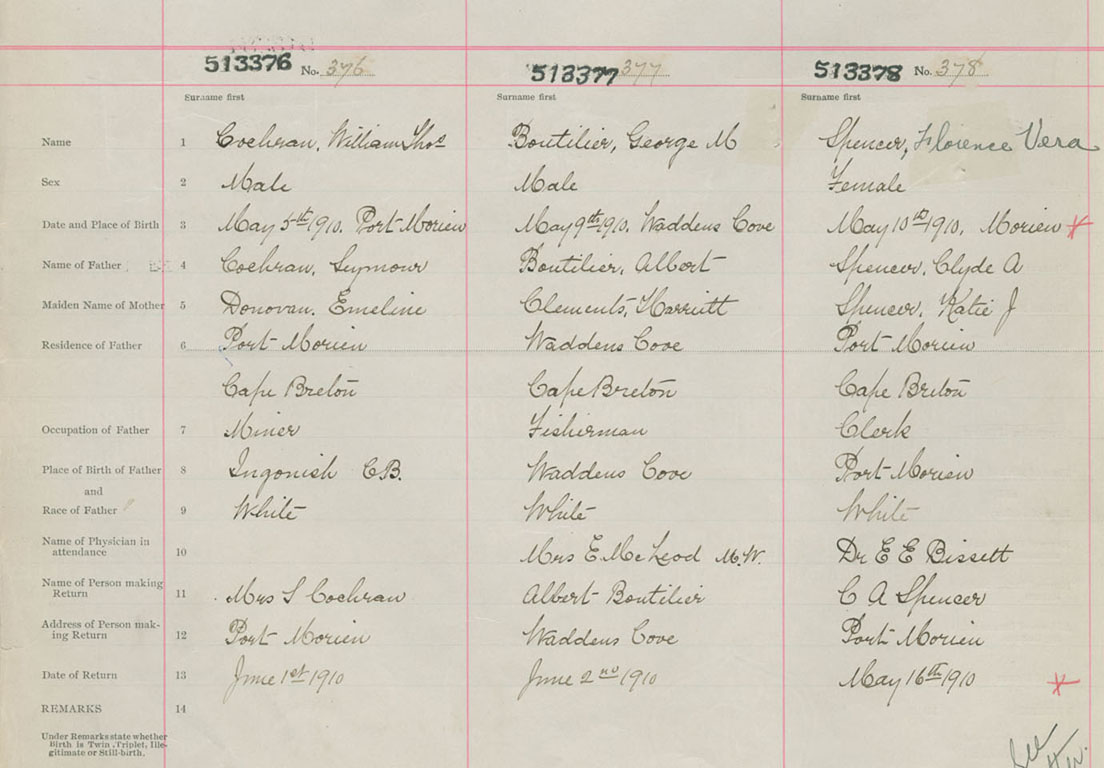 513376 No. 376 513377 377 513378 No. 378
Surname first Surname first Surname first
Name 1 Cochran, William Thos Boutilier, George M Spencer, Florence Vera
Sex 2 Male Male Female
Date and Place of Birth 3 May 5th 1910. Port Morien May 9th 1910, Waddens Cove May 10th 1910, Morien x
Name of Father 4 Cochran, Seymour Boutilier, Albert Spencer, Clyde A
Maiden Name of Mother 5 Donovan, Emeline Clements, Harriett Spencer, Katie J
Residence of Father 6 Port Morien Waddens Cove Port Morien
Cape Breton Cape Breton Cape Breton
Occupation of Father 7 Miner Fisherman Clerk
Place of Birth of Father 8 Ingonish C.B. Waddens Cove Port Morien
and
Race of Father 9 White White White
Name of Physician in
attendance 10 Mrs E. McLeod M.W. Dr E E Bissett
Name of Person making
Return 11 Mrs S Cochran Albert Boutilier C A Spencer
Address of Person mak-
ing Return 12 Port Morien Waddens Cove Port Morien
Date of Return 13 June 1st 1910 June 2nd 1910 May 16th 1910 x
REMARKS 14
Under Remarks state whether
Birth is Twin, Triplet, Ille-
gitimate or Still-birth.